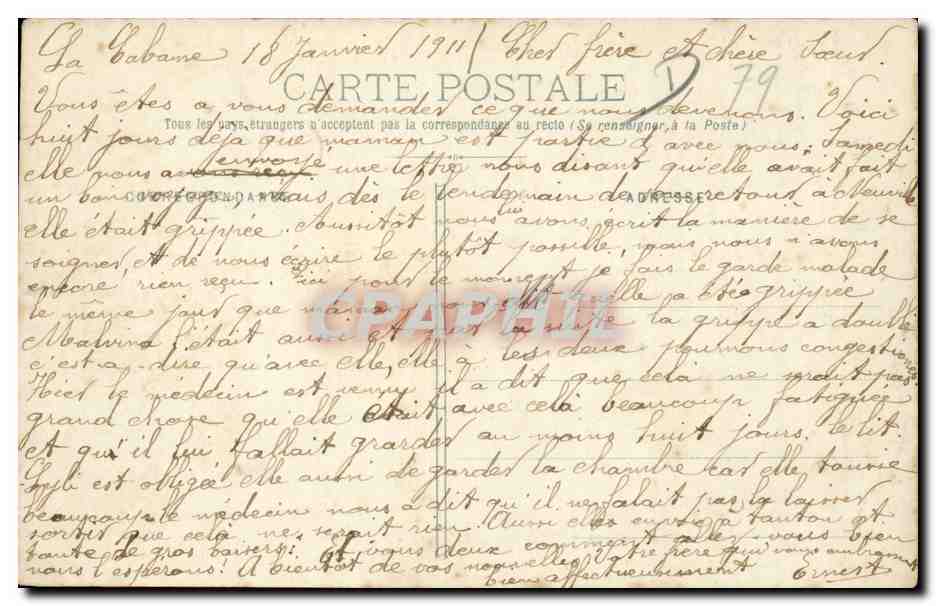 La Cabane 18 Janvier 1911 / Cher frère et chère Sœur.
CARTE POSTALE
D 79
Vous êtes a vous demander ce que nous devenons. Voici
Tous les pays étrangers n'acceptent pas la correspondance au recto (Se renseigner à la Poste)
huit jours déja que maman est partie d'avec nous; Samedi
envoyé
elle nous a une lettre nous disant qu'elle avait fait
CORRESPONDANCE ADRESSE
un bon mais dès le lendemain de son retour a
elle était grippée. Aussitôt nous lui avons écrit la manière de se
soigner, et de nous écrire le plutôt possible, mais nous n'avons
encore rien reçu. Ici pour le moment je fais le garde malade
le même jour que maman a été grippée
CPAPHIL
Malvina l'était aussi et par la suite la grippe a doublé
c'est-a-dire qu'avec elle, elle à les deux poumons congestionés
Hier le médecin est venu il a dit que celà ne serait pas
grand chose qu'elle était avec celà beaucoup fatiguée
et qu'il lui fallait grarder au moins huit jours le lit.
est obligée elle aussi de garder la chambre car elle tousse
beaucoup le médecin nous a dit qu'il ne falait pas la laisser
sortir que celà ne serait rien. Aussi elles envoie à tonton et
tante de gros baisers. Et vous deux comment allez-vous bien
nous l'espérons! A bientôt de vos nouvelles Votre frère qui vous embrasse
bien affectueusement Ernest